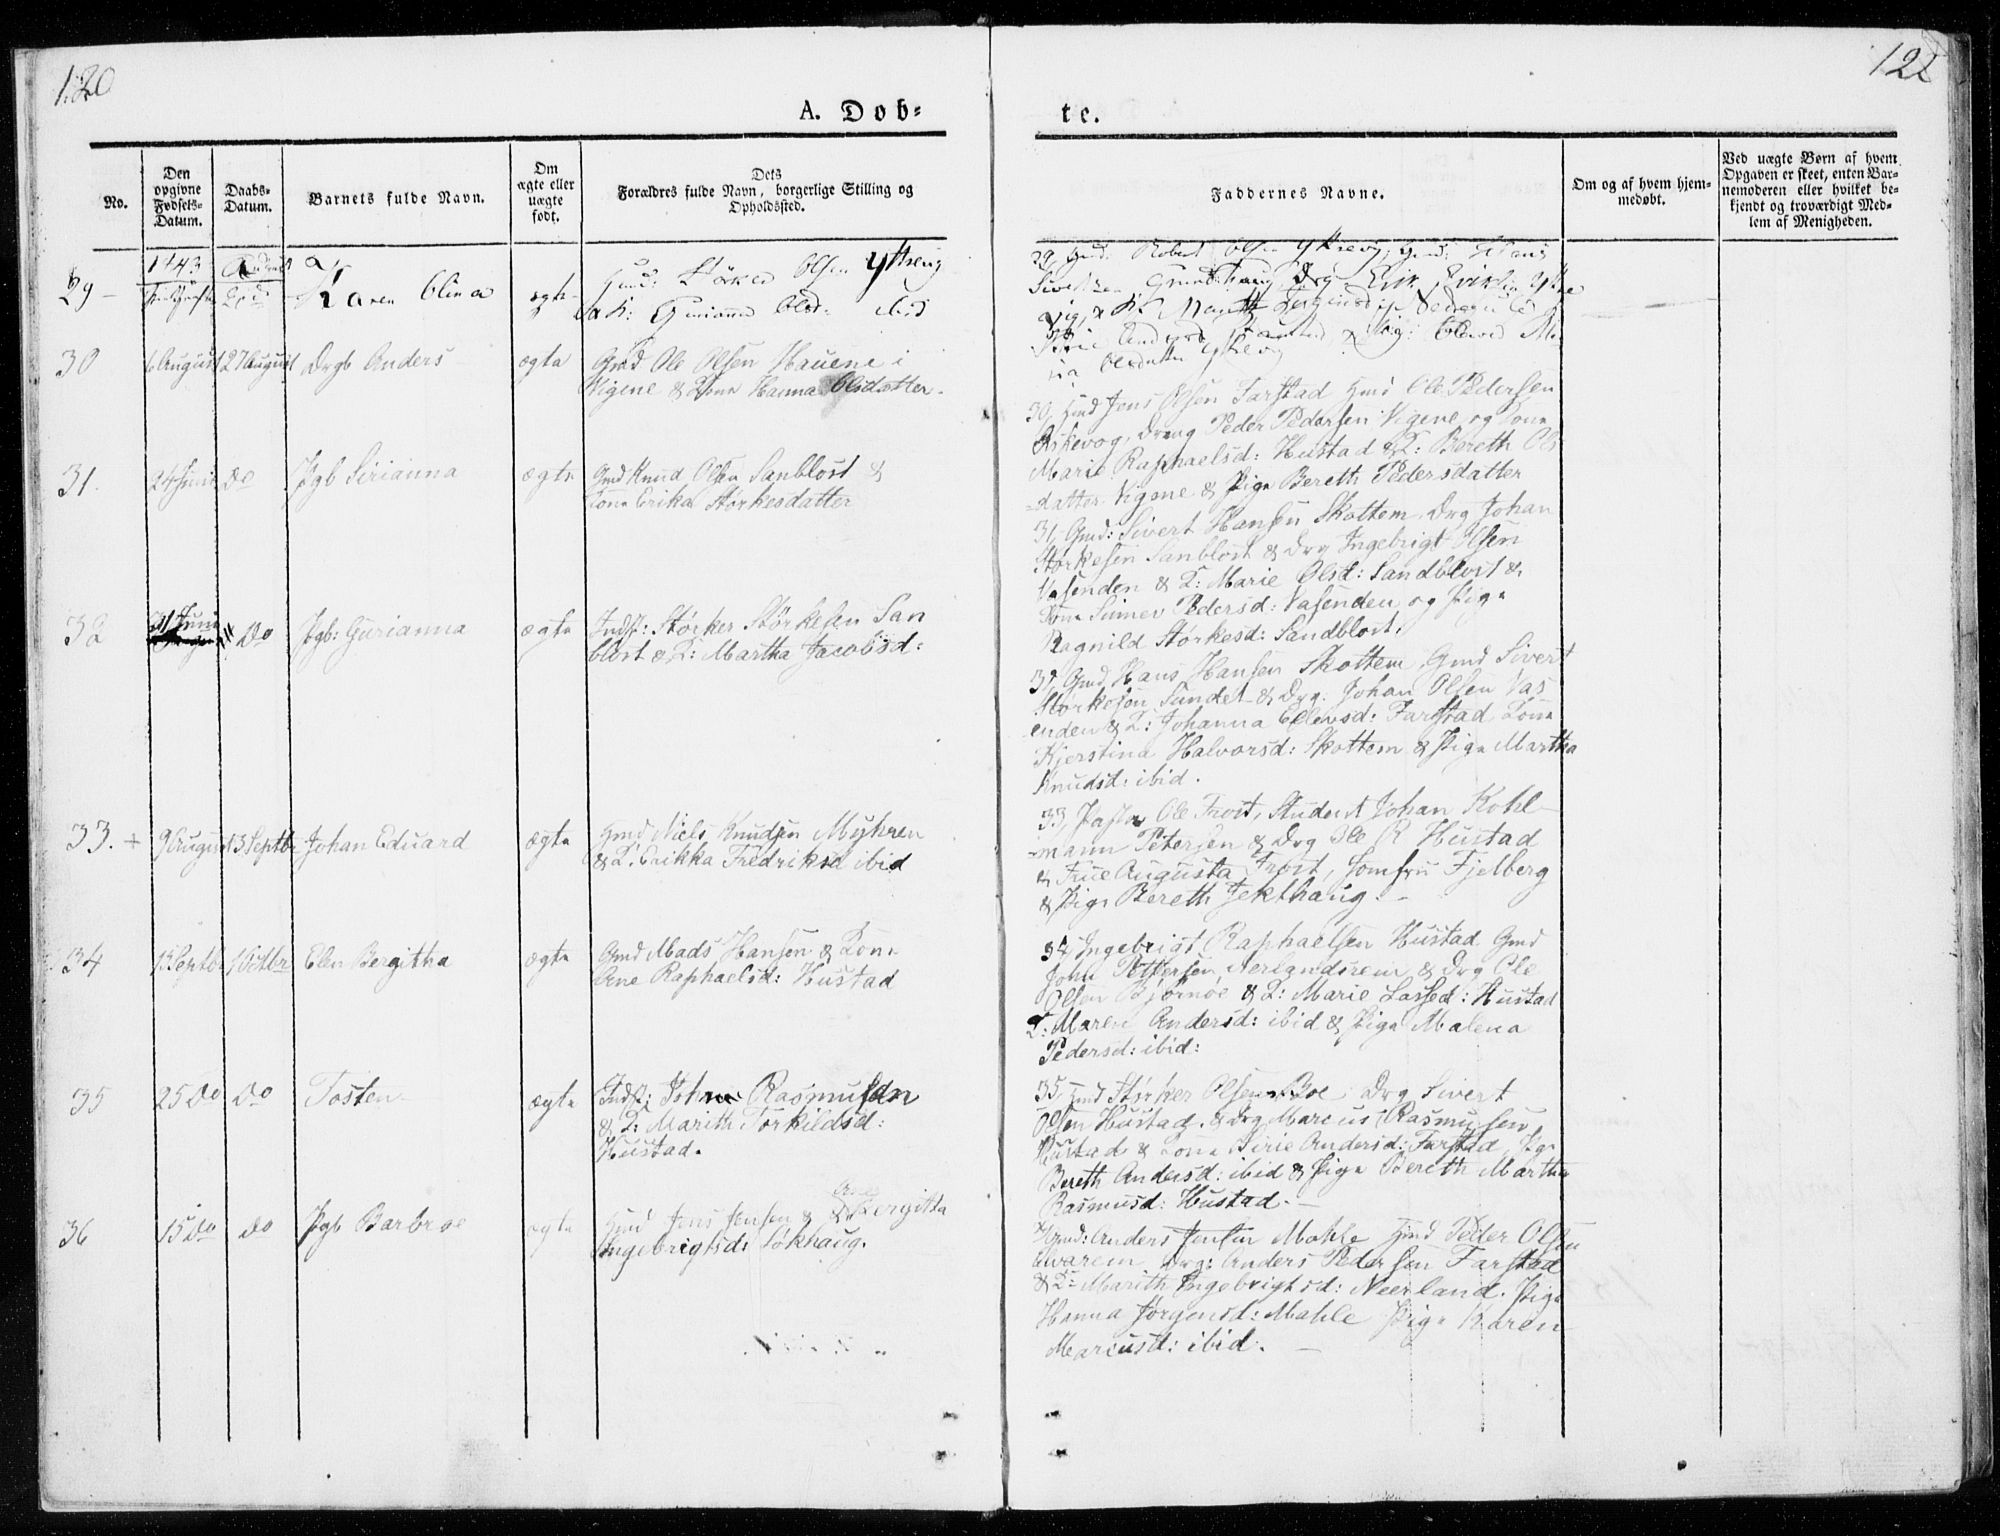 120
122
A. Døb=
te.
No.
Den
opgivne
Fødsels-
Datum.
Daabs-
Datum.
Barnets fulde Navn.
Om
ægte eller
uægte
født.
Dets
Forældres fulde Navn, borgerlige Stilling og
Opholdssted.
Faddernes Navne.
Om og af hvem hjem-
medøbt.
Ved uægte Børn af hvem
Opgaven er skeet, enten Bar-
nemoderen eller hvilket be-
kjendt og troværdigt Med-
lem af Menigheden.
1843
29
Karen Olina
ægte
Gmd: Størker Olsen Yttrevig
& K: Gurianna Olsd: ibid
30
6 August
27 August
Drgb Anders
ægte
Gmd Ole Olsen Hauene i
Vigene & Kone Hanna Olsdatter.
31.
24 Juni
do
Pgb Sirianna
ægte
Gmd Knud Olsen Sanblost &
Kone Erika Størkesdatter
32
21 Juni
Do
Pgb: Gurianna
ægte
Indst: Størker Størkesen San
blost & K: Martha Jacobsd:
33. +
9 August
13 Septbr
Johan Eduard
ægte
Gmd Niels Knudsen Myhren
& K: Erikka Fredriksd ibid
34
13 Septbr
1 Octbr
Elen Bergitha
ægte
Gmd Mads Hansen & Kone
Ane Raphaelsd: Hustad
35
25 Do
Do
Tosten
ægte
Indst: John Rasmusen
& K: Marith Torkildsd:
Hustad.
36
15 Do
do
Pgb Barbroe
ægte
Gmd Jens Jensen & Ane Bergitta
Ingebrigtsd: Løkhaug.
29, Gmd. Robert Olsen Yttrevig, Gmd: Hans
Sivertsen Drg Erik Eriksen Yttre
vig, & K. Mareth
Andersd
Olsdatter Yttrevig
30, Gmd Jens Olsen Farstad Gmd Ole Pedersen
Askevog, Dreng Peder Pedersen Vigene og Kone
Marie Raphaelsd: Hustad & K: Bereth Ols
=datter Vigene & Pige Bereth Pedersdatter
31, Gmd: Sivert Hansen Skottem, Drg Johan
Størkesen Sanblost & Drg Ingebrigt Olsen
Vasenden & K: Marie Olsd: Sandblost &
Kone Simev Pedersd: Vasenden og Pige
Ragnild Størkesd: Sandblost.
32, Gmd Hans Hansen Skottem, Gmd Sivert
Størkesen Sundet & Drg: Johan Olsen Vas-
enden & K: Johanna Ellevsd: Farstad Kone
Kjerstina Halvorsd: Skottem & Pige Martha
Knudsd: ibid.
33, Pastor Ole Frost, Student Johan Kohl-
=mann Petersen & Drg Ole R Hustad
& Frue Augusta Frost, Jomfru Fjelberg
& Pige Bereth Jekthaug. -
34, Ingebrigt Raphaelsen Hustad Gmd
John Pettersen Nerlandsrein & Drg Ole
Olsen Bjørnøe & K: Marie Larsed: Hustad
K: Maren Andersd: ibid & Pige Malena
Pedersd: ibid:
35, Gmd Størker Olsen Boe Drg Sivert
Olsen Hustad, & Drg Marcus Rasmusen
Hustad & Kone Sirie Andersd: Farstad, Pige
Bereth Andersd: ibid & Pige Bereth Martha
Rasmusd: Hustad -
Gmd: Anders Jensen Mahle Gmd Peder Olsen
Drg: Anders Pedersen Farstad
& K: Marith Ingebrigtsd: Neerland. Pige
Hanna Jørgensd: Mahle Pige Karen
Marcusd: ibid. -